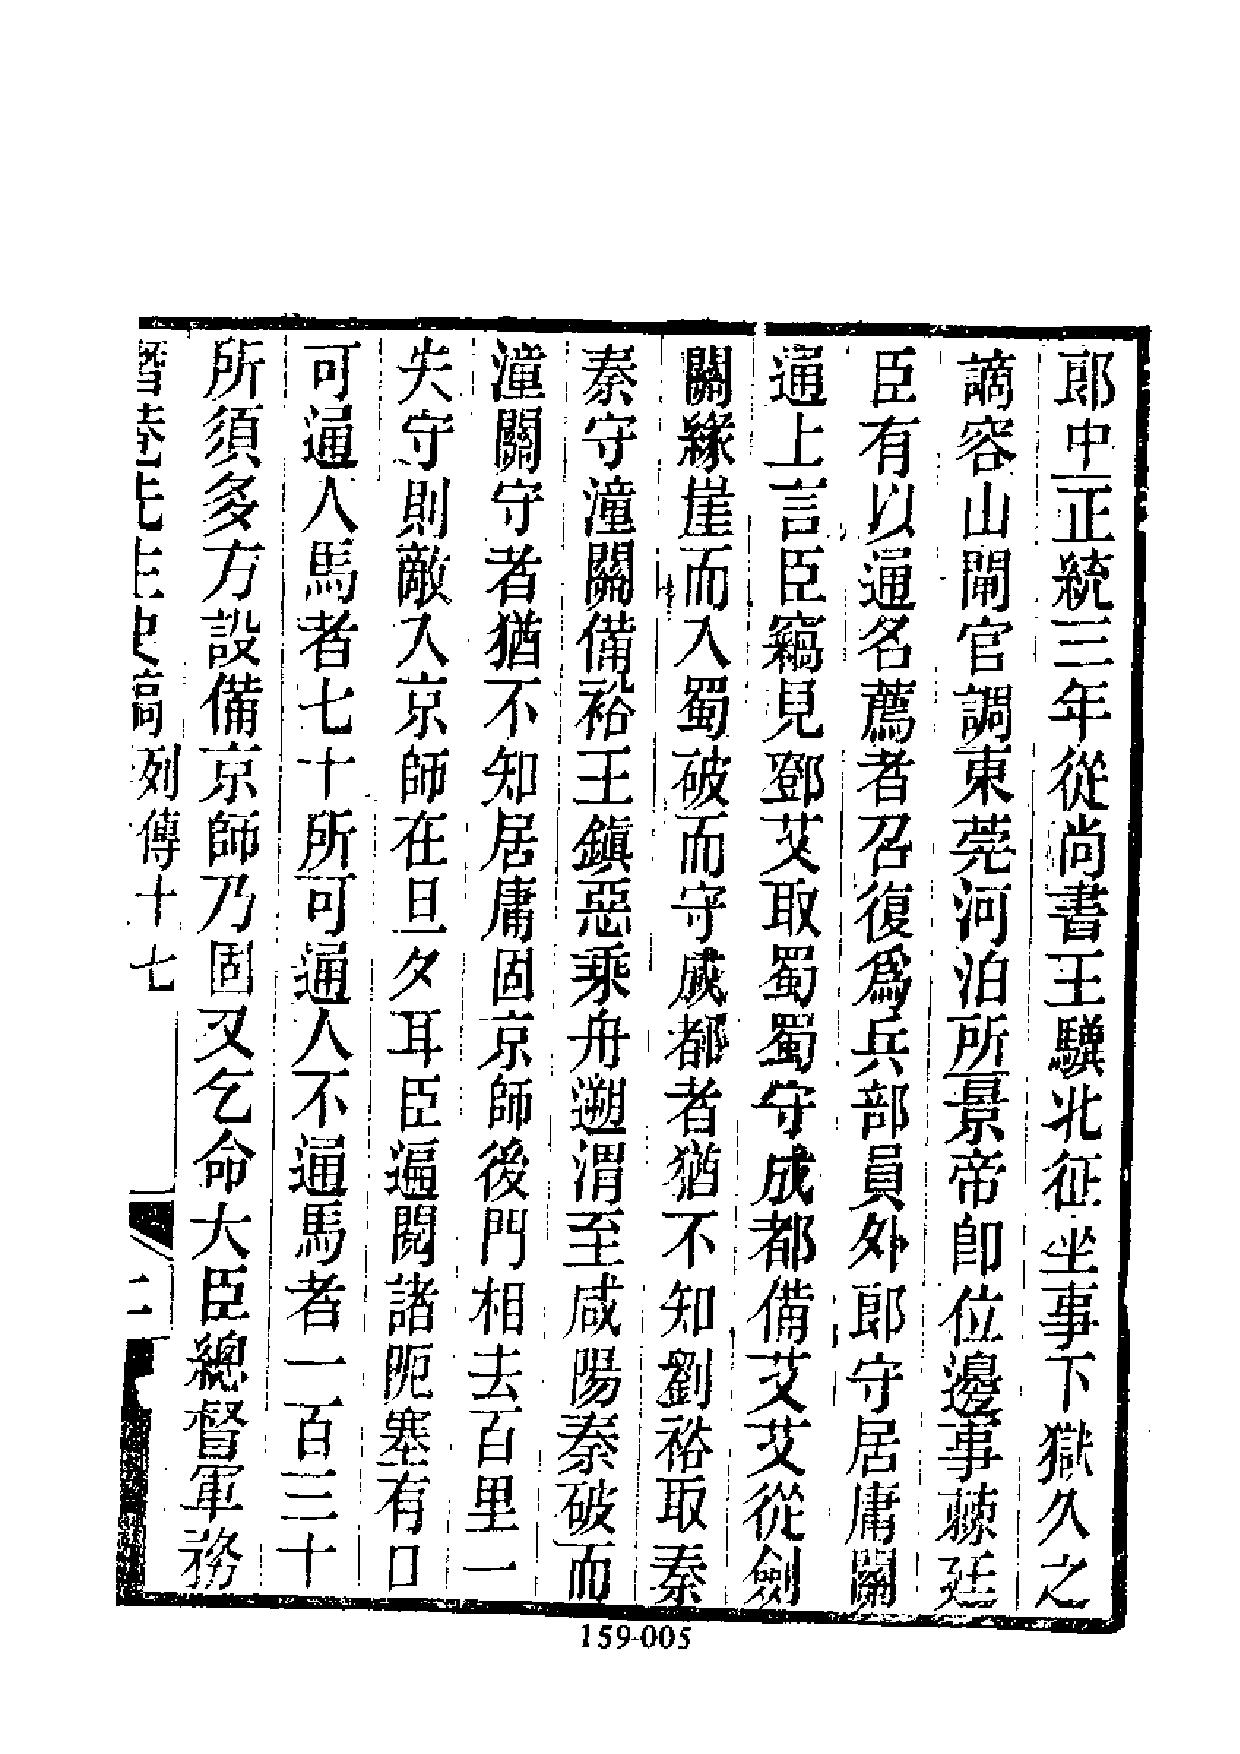 郎中正統三年從尚書王驥北征坐事下獄久之
謫容山閘官調東莞河泊所景帝卽位邊事棘廷
臣有以通名薦者召復爲兵部員外郎守居庸關
通上言臣竊見鄧艾取蜀蜀守成都備艾艾從劍
關緣崖而入蜀破而守成都者猶不知劉裕取秦
秦守潼關備裕王鎮惡乘舟遡渭至咸陽秦破而
潼關守者猶不知居庸固京師後門相去百里一
失守則敵入京師在旦夕耳臣遍閱諸阨塞有口
可通人馬者七十所可通人不通馬者一百三十
所須多方設備京師乃固又乞命大臣總督軍務
潛菴先生史稿列傳十七
二
159-005